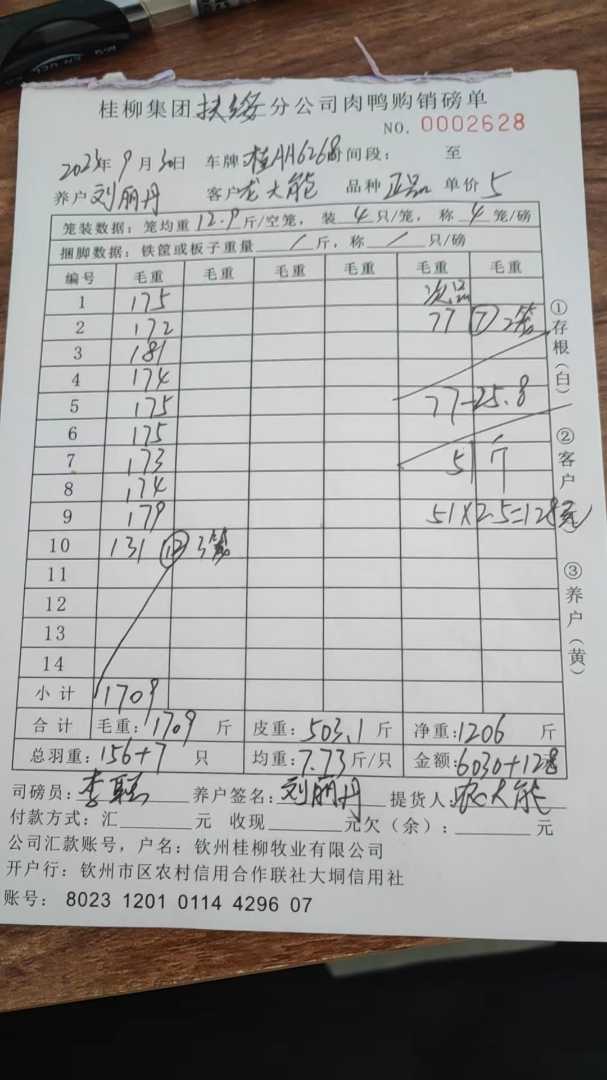 桂柳集团扶绥分公司肉鸭购销磅单
NO. 0002628
2025年9月30日 车牌:桂AH6268时间段: 至
养户刘丽丹 客户龙大能 品种正品 单价5
笼装数据: 笼均重12.9斤/空笼, 装4只/笼, 称4笼/磅
捆脚数据: 铁筐或板子重量/斤, 称/只/磅
编号 毛重 毛重 毛重 毛重 毛重 毛重
1 175 次品
2 172 77 ⑦ 2笼
3 181
4 174
5 175 77-25.8
6 175
7 173 51 7
8 174
9 179 51×2.5=128元
10 131 ⑫ 3笼
11
12
13
14
小计 1709
合计 毛重:1709斤 皮重:503.1斤 净重:1206斤
总羽重:156+7只 均重:7.73斤/只 金额:6030+128
①存根(白) ②客户 ③养户(黄)
司磅员: 李聪 养户签名: 刘丽丹 提货人: 大能
付款方式: 汇 元 收现 元欠(余): 元
公司汇款账号, 户名: 钦州桂柳牧业有限公司
开户行: 钦州市区农村信用合作联社大垌信用社
账号: 8023 1201 0114 4296 07